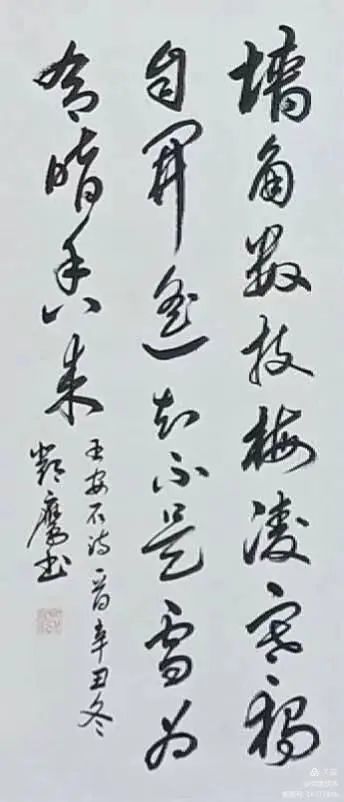 墙角数枝梅凌寒独
自开遥知不是雪为
有暗香来
王安石诗一首辛丑冬